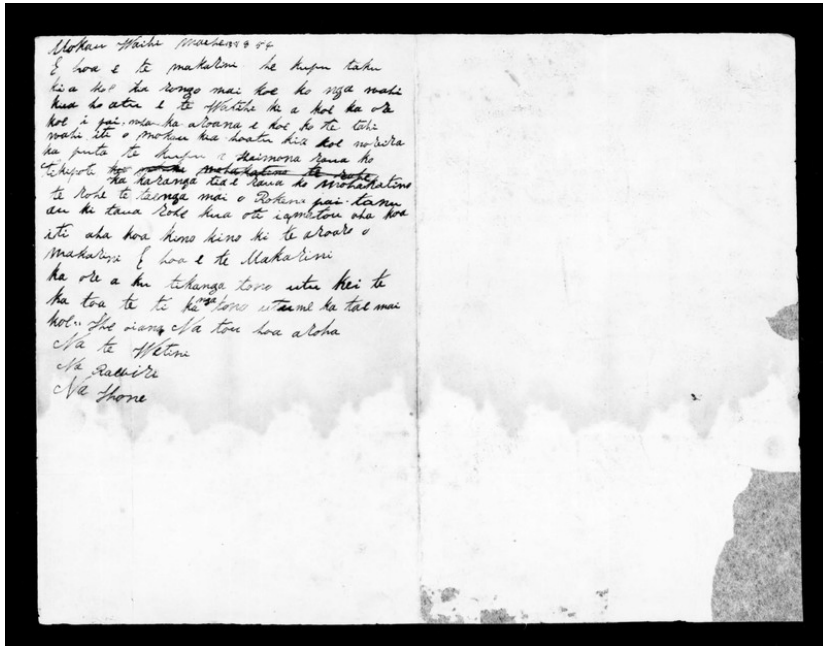 Mokau Waihi Maehe 1 8 54
E hoa e te makarini he kupu taku
kia koe ka rongo mai koe ko nga wahi
kua hoatu e te Watihi ki a koe ka ore
koe i pai mea ka aroana e koe ko te tahi
wahi iti o mokau kia hoatu kia koe noreira
ka puta te kupu a Haimona raua ko
tikapoti
ka karanga tia e raua ko mohakatino
te rohe te taenga mai o Rokena pai tanu
au ki taua rohe kua oti iamatou aha koa
iti aha koa kino kino ki te aroaro o
makarini E hoa e te Makarini
ka ore a ku tikanga tono utu kei te
ka toa te ti kanga tono utu me ka tae mai
koe Na tou hoa aroha
Na te Wetini
Na
Na Ihone